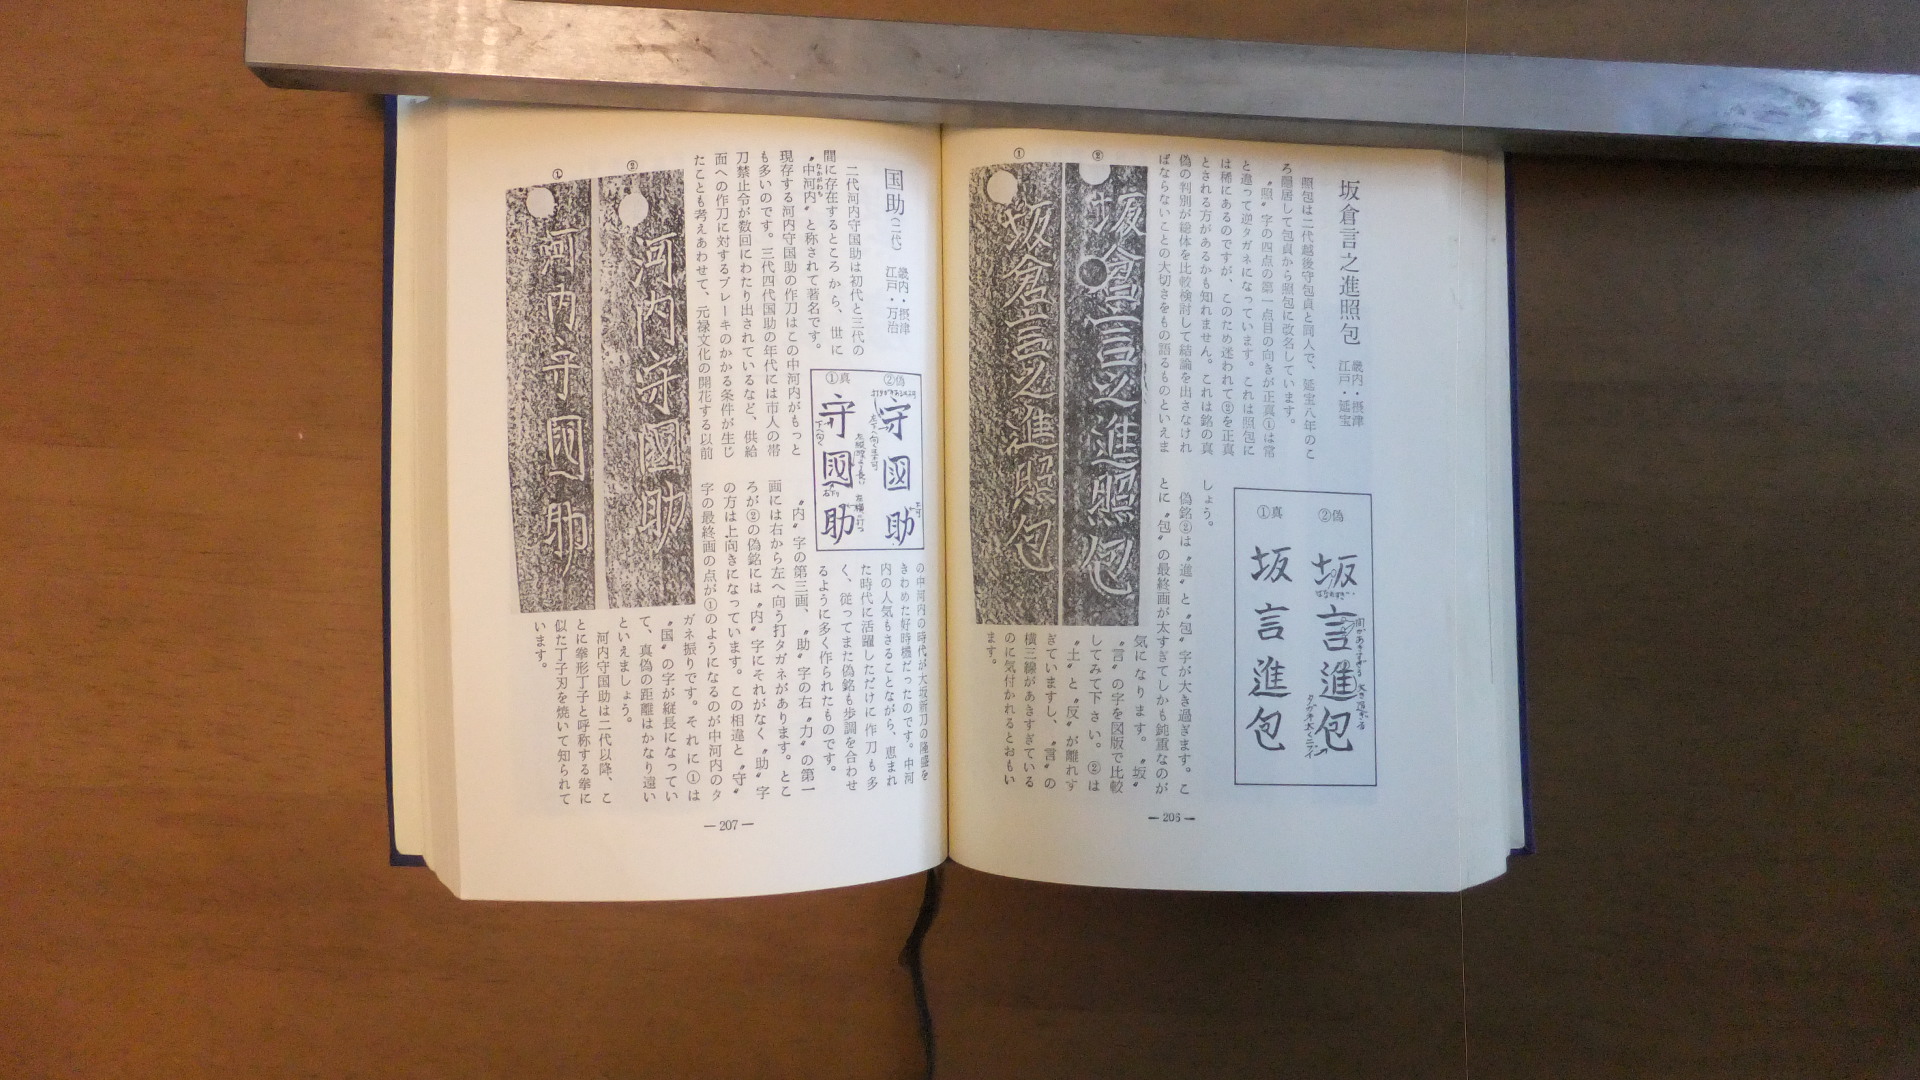 坂倉言之進照包
畿内・摂津
江戸・延宝
照包は二代越後守包貞と同人で、延宝八年のこ
ろ隠居して包貞から照包に改名しています。
〝照〟字の四点の第一点目の向きが正真①は常
と違って逆タガネになっています。これは照包に
は稀にあるのですが、このため迷われて②を正真
とされる方があるかも知れません。これは銘の真
偽の判別が総体を比較検討して結論を出さなけれ
ばならないことの大切さをもの語るものといえま
しょう。
偽銘②は〝進〟と〝包〟字が大き過ぎます。こ
とに〝包〟の最終画が太すぎてしかも鈍重なのが
気になります。〝坂〟
〝言〟の字を図版で比較
してみて下さい。②は
〝土〟と〝反〟が離れす
ぎていますし、〝言〟の
横三線があきすぎている
のに気付かれるとおもい
ます。
②偽
坂言進包
①真
坂言進包
②
坂倉言之進照包
①
坂倉言之進照包
— 206 —
国助(二代)
畿内・摂津
江戸・万治
二代河内守国助は初代と三代の
間に存在するところから、世に
〝中河内〟と称されて著名です。
なかがわち
現存する河内守国助の作刀はこの中河内がもっと
も多いのです。三代四代国助の年代には市人の帯
刀禁止令が数回にわたり出されているなど、供給
面への作刀に対するブレーキのかかる条件が生じ
たことも考えあわせて、元禄文化の開花する以前
の中河内の時代が大坂新刀の隆盛を
きわめた好時機だったのです。中河
内の人気もさることながら、恵まれ
た時代に活躍しただけに作刀も多
く、従ってまた偽銘も歩調を合わせ
るように多く作られたものです。
〝内〟字の第三画、〝助〟字の右〝力〟の第一
画には右から左へ向う打タガネがあります。とこ
ろが②の偽銘には〝内〟字にそれがなく〝助〟字
の方は上向きになっています。この相違と〝守〟
字の最終画の点が①のようになるのが中河内のタ
ガネ振りです。それに①は
〝国〟の字が縦長になってい
て、真偽の距離はかなり遠い
といえましょう。
河内守国助は二代以降、こ
とに拳形丁子と呼称する拳に
似た丁子刃を焼いて知られて
います。
②偽
守國助
①真
守國助
②
河内守國助
①
河内守國助
— 207 —